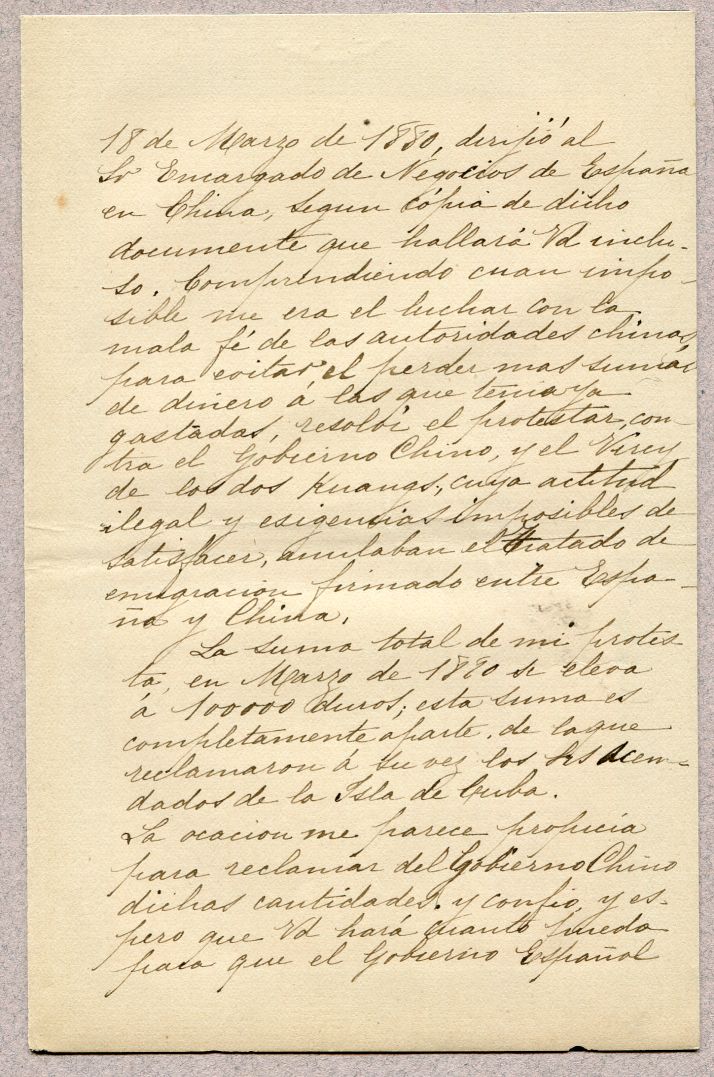 18 de Marzo de 1880, dirijió al
Sr Encargado de Negocios de España
en China, segun cópia de dicho
documente que hallará Vd inclu-
so. Comprendiendo cuan impo-
sible me era el luchar con la
mala fé de las autoridades chinas,
para evitar el perder mas sumas
de dinero á las que tenia ya
gastadas, resolbí el protestar con-
tra el Gobierno Chino, y el Virey
de los dos Kuangs, cuya actitud
ilegal y esigencias imposibles de
satisfacer, anulaban el Tratado de
emigracion firmado entre Espa-
ña y China.
La suma total de mi protes
ta, en Marzo de 1880 se eleva
á 100000 duros; esta suma es
completamente aparte de la que
reclamaron á su vez los Srs Acen-
dados de la Isla de Cuba.
La ocacion me parece propicia
para reclamar del Gobierno Chino
dichas cantidades y confio, y es-
pero que Vd hará cuanto pueda
para que el Gobierno Español